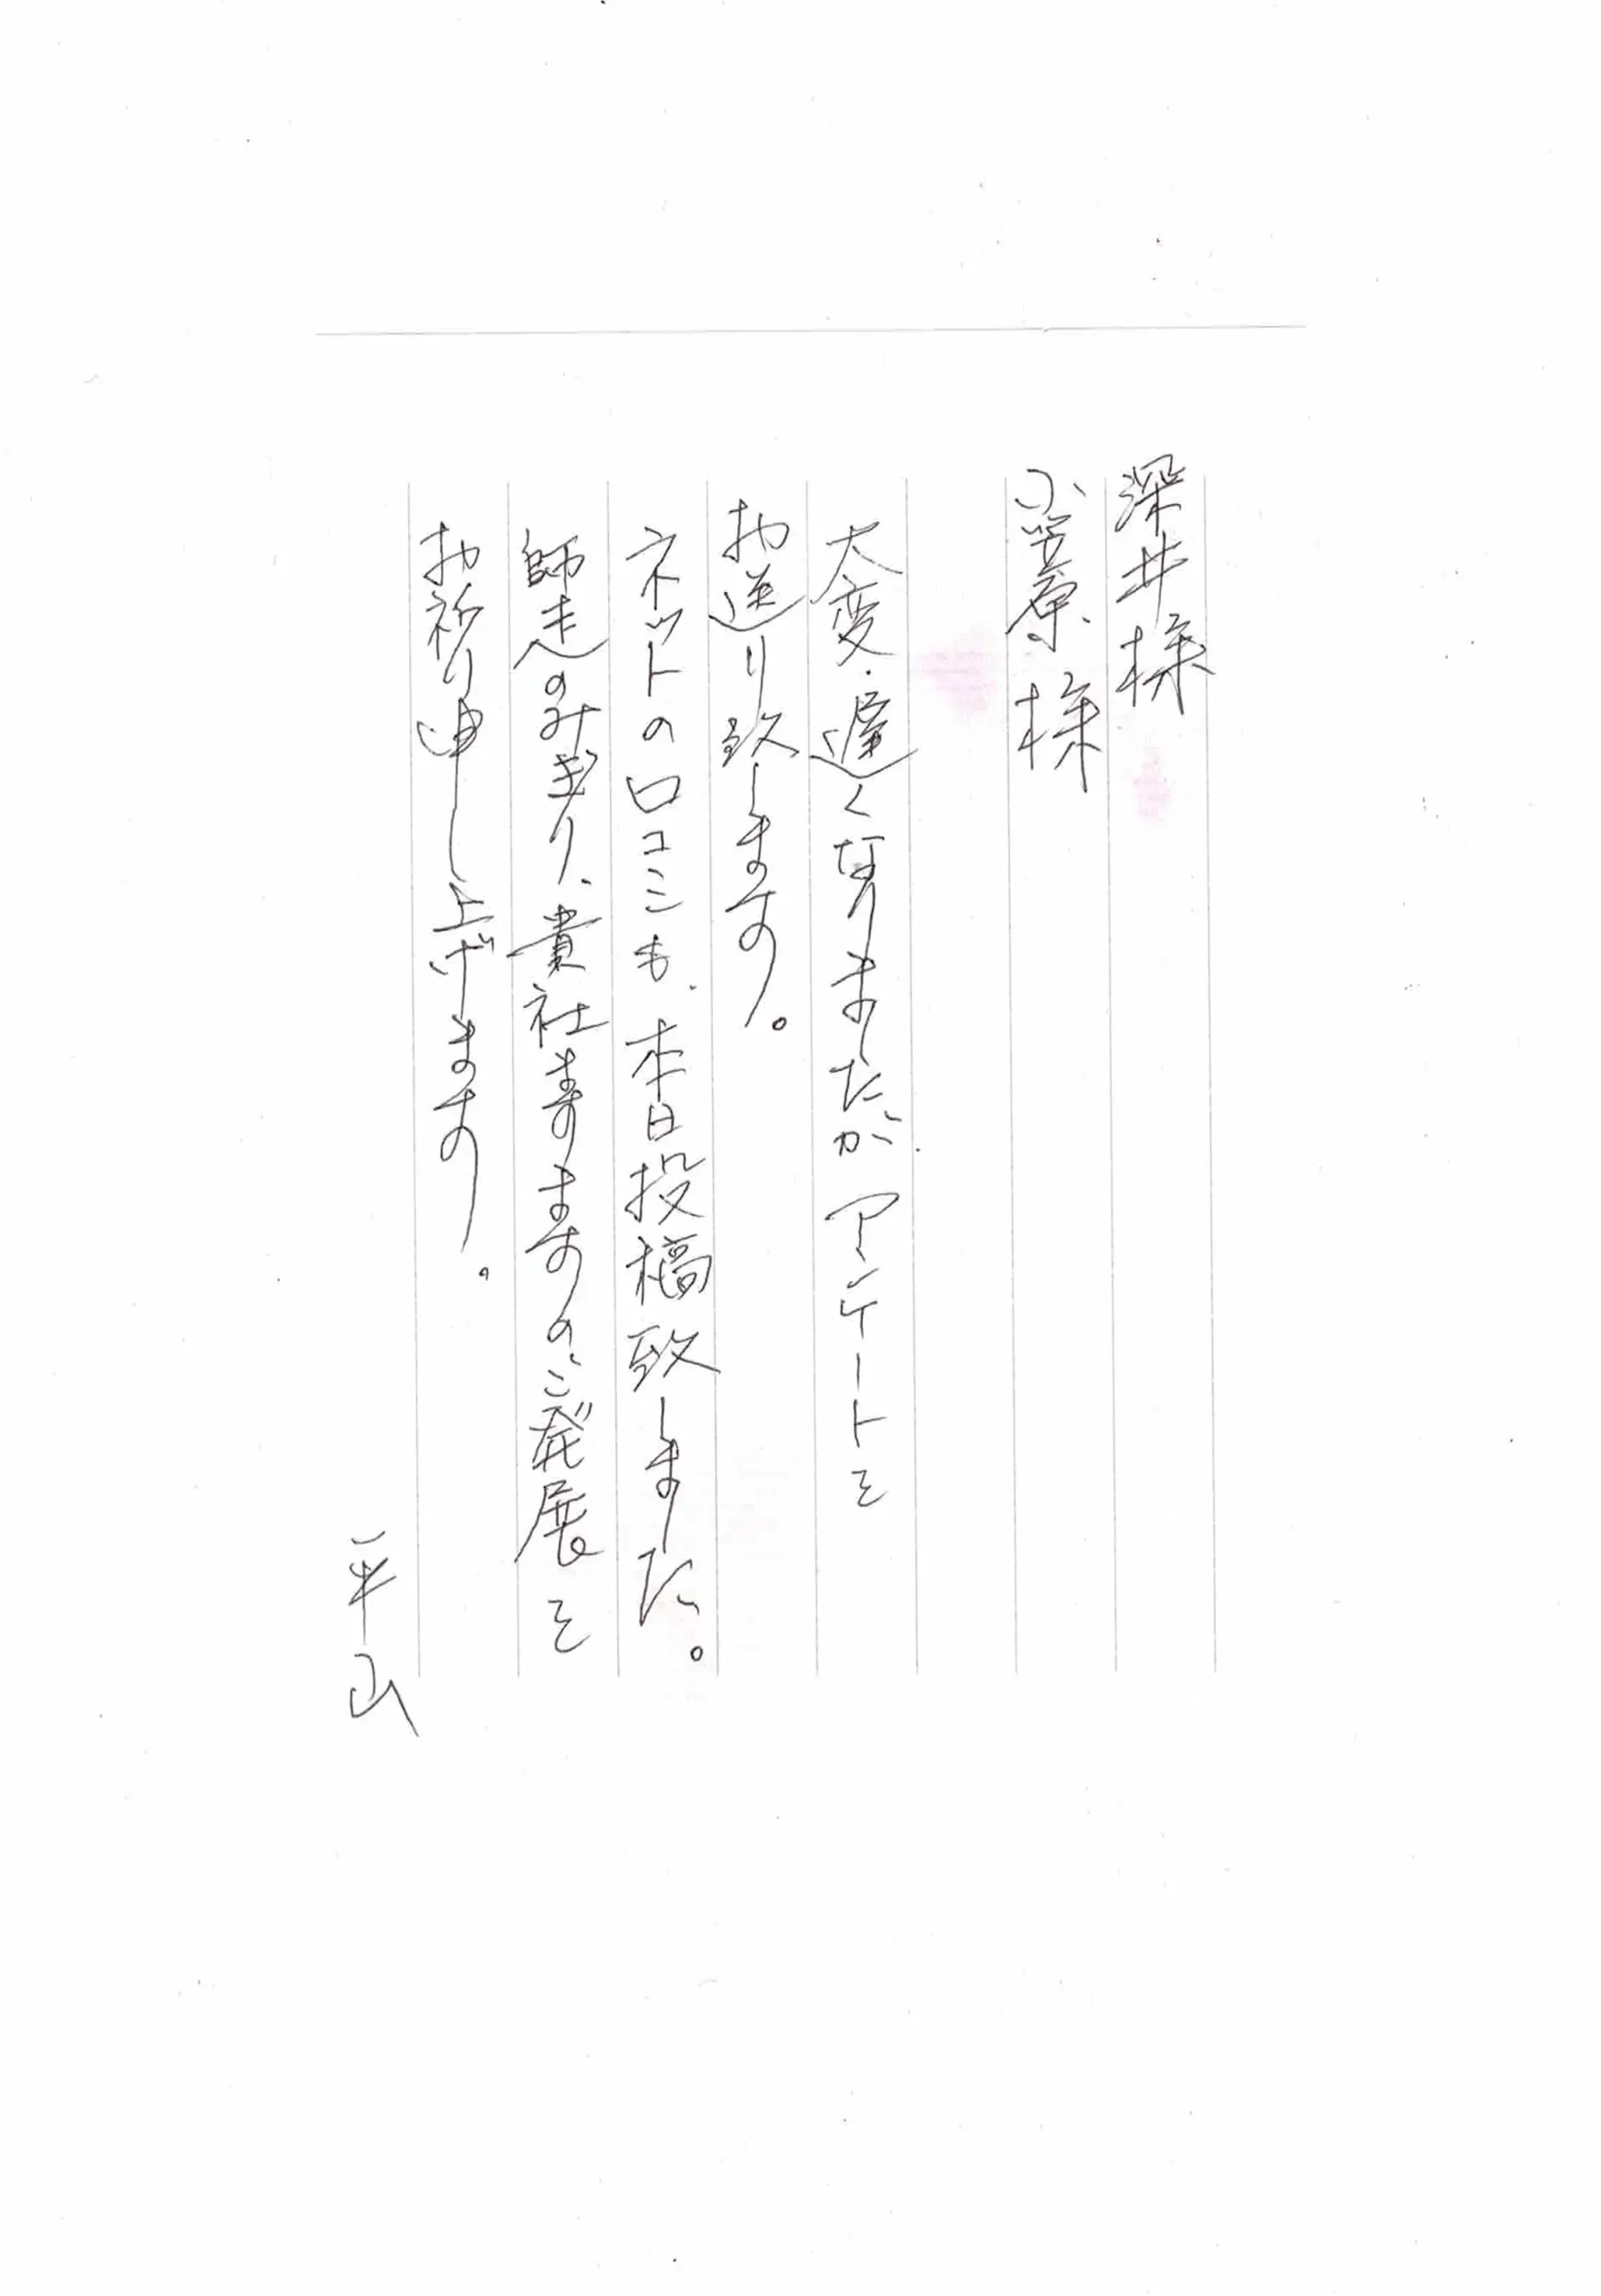 深井様
小笠原様
大変遅くなりましたが、アンケートを
お送り致します。
ネットの口コミも、本日投稿致しました。
師走のみぎり、貴社ますますのご発展を
お祈り申し上げます。
平山